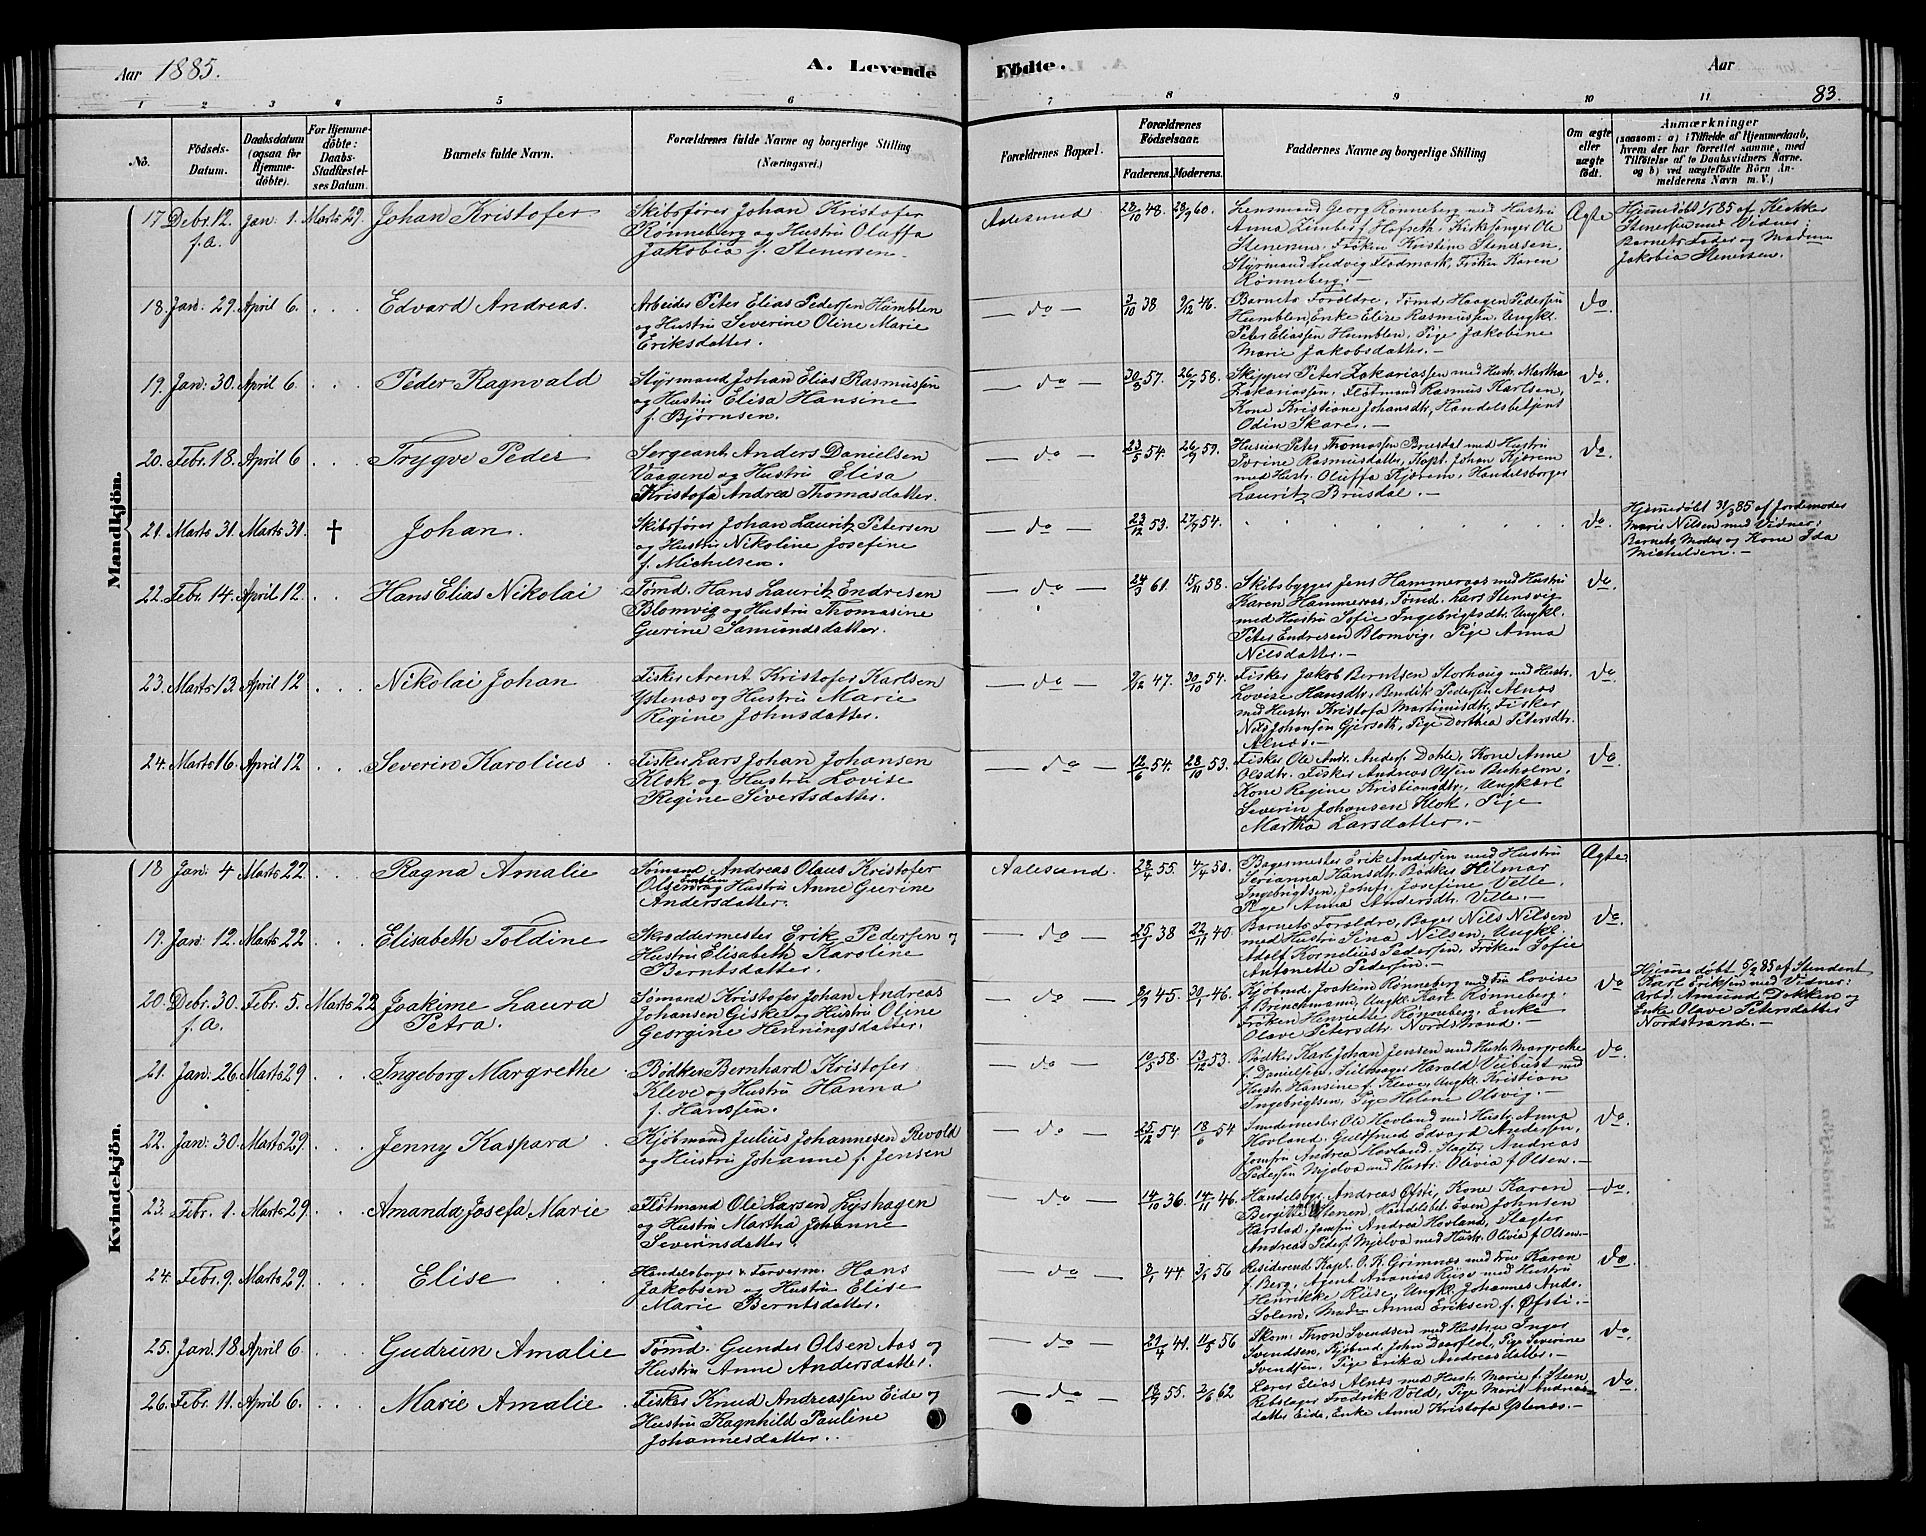 Aar 1885.
A. Levende
Fødte.
Aar
83.
1 2 3 4 5 6 7 8 9 10 11
No.
Fødsels-Datum.
Daabsdatum (ogsaa før Hjemme-døbte).
For Hjemme-døbte: Daabs-Stadfæstel-ses Datum.
Barnets fulde Navn.
Forældrenes fulde Navne og borgerlige Stilling
(Næringsvei.)
Forældrenes Bopæl.
Forældrenes Fødselsaar.
Faderens. Moderens.
Faddernes Navne og borgerlige Stilling
Om ægte eller uægte født.
Anmærkninger
(saasom: a) i Tilfælde af Hjemmedaab,
hvem der har forrettet samme, med
Tilføielse af to Daabsvidners Navne.
og b) ved uægtefødte Börn An-
melderens Navn m. V.)
Mandkjön.
17. Debr. 12. f.a. Jan: 1. Marts 29. Johan Kristofer
Skibsfører Johan Kristofer
Rønneberg og Hustru Oluffa
Jakobia f. Stenersen.
Aalesund 23/10 48. 28/9 60.
Lensmand Georg Rønneberg med Hustru
Anna Zimber f. Hofseth. Kirkesanger Ole
Stenersen. Frøken Kristine Stenersen.
Styrmand Ludvig Flodmark, Frøken Karen
Rønneberg.—
Ægte
Hjemmedøbt 1/1 85 af Klokker
Stenersen med Vidner:
Barnets Fader og Madam
Jakobia Stenersen.
18. Jan. 29. April 6. Edvard Andreas.
Arbeider Peter Elias Pedersen Humblen
og Hustru Severine Oline Marie
Eriksdatter.
— do — 3/10 38 9/12 46.
Barnets Forældre, Tømd Haagen Pedersen
Humblen, Enke Elise Rasmussen, Ungkl.
Peter Eliassen Humblen, Pige Jakobine
Marie Jakobsdatter.—
do
19. Jan: 30. April 6. Peder Ragnvald
Styrmand Johan Elias Rasmussen
og Hustru Elisa Hansine
f. Bjørnsen.
— do — 30/8 57. 26/7 58.
Skipper Peter Zakariassen med Hustr. Martha
Zakariassen, Flotmand Rasmus Karlsen,
Kone Kristiane Johansdtr, Handelsbetjent
Odin Skare.—
do.
20. Febr. 18. April 6 Trygve Peder
Sergeant Anders Danielsen
Vaagene og Hustru Elisa
Kristofa Andrea Thomasdatter.
— do — 23/5 54. 26/9 59.
Huseier Peter Thomassen Brusdal med Hustru
Ivrine Rasmusdatter, Kapt. Johan Kjørem
med Hustr. Oluffa Kjørem, Handelsborger
Lauritz Brusdal.—
do.
21. Marts 31. Marts 31. † Johan.
Skibsfører Johan Lauritz Petersen
og Hustru Nikoline Josefine
f. Michelsen.
— do — 23/12 53. 27/9 54.
do.
Hjemmedøbt 31/3 85 af Jordemoder
Marie Nilsen med Vidner:
Barnets Moder og Kone Ida
Michelsen.—
22. Febr. 14. April 12. Hans Elias Nikolai
Tømd. Hans Lauritz Endresen
Blomvig og Hustru Thomasine
Gurine Samundsdatter.
— do — 24/3 61. 15/11 58.
Skibsbygger Jens Hammeraas med Hustru
Karen Hammeraas, Tømd. Lars Stensvig
med Hustru Sofie Ingebrigtsdtr. Ungkl.
Peter Endresen Blomvig, Pige Anna
Nilsdatter.—
do.
23. Marts 13. April 12 Nikolai Johan
Fisker Arent Kristofer Karlsen
Ystenæs og Hustru Marie
Regine Johnsdatter.
— do — 9/12 47. 30/10 54.
Fisker Jakob Berntsen Storhaug med Hustr.
Lovise Hansdtr. Bendik Pedersen Alnæs
med Hustr. Kristofa Martinusdtr. Fisker
Nils Johansen Gjerseth, Pige Dorthea Petersdtr.
Alnæs.—
do.
24. Marts 16. April 12 Severin Karolius
Fisker Lars Johan Johansen
Klok og Hustru Lovise
Regine Sivertsdatter.
— do — 12/6 54. 28/10 53.
Fisker Ole Andr. Anders. Dahle, Kone Anne
Olsdtr. Fisker Andreas Olsen Buholm.
Kone Regine Kristiansdtr., Ungkarl
Severin Johansen Klok, Pige
Martha Larsdatter.—
do.
Kvindekjön.
18 Jan: 4 Marts 22. Ragna Amalie
Sømand Andreas Olaus Kristofer
Olsen Emblem og Hustru Anne Gurine
Andersdatter.
Aalesund. 23/4 55. 4/4 50.
Bagermester Erik Andersen med Hustru
Serianna Hansdtr. Bødker Hilmar
Ingebrigtsen, Jomfr. Josefine Velle.
Pige Anna Andersdtr. Velle.—
Ægte.
19. Jan: 12. Marts 22 Elisabeth Toldine
Skræddermester Erik Pedersen og
Hustru Elisabeth Karoline
Berntsdatter.
— do — 25/1 38 22/11 40.
Barnets Forældre, Bager Nils Nilsen
med Hustru Sina Nilsen, Ungkl.
Adolf Kornelius Pedersen, Frøken Sofie
Antonette Pedersen.—
do.
20. Debr. 30. f.a. Febr. 5. Marts 22 Joakime Laura
Petra.
Sømand Kristofer Johan Andreas
Johansen Giske og Hustru Oline
Georgine Henningsdatter.
— do — 45. 30/1 46.
Kjøbmd. Joakim Rønneberg med Fru Lovise
f. Brinchmann, Ungkl. Karl Rønneberg.
Frøken Henriette Rønneberg, Enke
Olave Petersdtr. Nordstrand.—
do
Hjemmedøbt 5/2 85 af Student
Karl Eriksen med Vidner:
Arbd. Amund Dokken og
Enke Olave Petersdatter
Nordstrand.—
21. Jan: 26. Marts 29 Ingeborg Margrethe
Bødker Bernhard Kristofer
Kleve og Hustru Hanna
f. Hanssen.
— do — 10/5 58. 13/12 53.
Bødker Karl Johan Jensen med Hustr. Margrethe
f. Danielsen, Seilmager Harald Viebust med
Hustr. Hansine f. Kleve, Ungkl. Kristian
Ingebrigtsen, Pige Helene Olsvig.—
do.
22. Jan: 30. Marts 29. Jenny Kaspara
Kjøbmand Julius Johannesen Revold
og Hustru Johanne f. Jensen
— do — 25/12 54 18/6 54
Smedemester Ole Hovland med Hustr. Anna
Hovland. Guldsmed Edvard Andersen,
Jomfru Andrea Hovland, Slagter Andreas
Pedersen Mjelva med Hustr. Olivia f. Olsen.—
do.
23. Febr. 1. Marts 29. Amanda Josefa Marie
Flotmand Ole Larsen Lyshagen
og Hustru Martha Johanne
Severinsdatter.
— do — 14/10 36. 14/11 46.
Handelsbgr. Andreas Øfsti, Kone Karen
Bergitte Stenen, Handelsbet. Even Johnsen
Harstad, Jomfru Andrea Hovland, Slagter
Andreas Peders. Mjelva med Hustr. Olivia f. Olsen.—
do.
24. Febr. 9. Marts 29. Elise
Handelsborger & Farverm. Hans
Jakobsen og Hustru Elise
Marie Berntsdatter.
— do — 2/1 44. 3/1 56
Residerend. Kapl. O. K. Grimnæs med Frue Karen
f. Berg, Agent Ananias Riise med Hustru
Henrikke Riise, Ungkl. Johannes Ands.
Solem, Madm Anna Eriksen f. Øfsti.—
do.
25. Jan: 18. April 6. Gudrun Amalie
Tømd. Gunder Olsen Aas og
Hustru Anne Andersdatter.
— do — 29/4 41. 11/5 56
Skom. Thron Svendsen med Hustru Inger
Svendsen, Kjøbmd. John Daarflot, Pige Severine
Svendsen, Pige Erika Andreasdatter.—
do.
26. Febr. 11. April 6. Marie Amalie
Fisker Knud Andreassen Eide og
Hustru Ragnhild Pauline
Johannesdatter.
— do — 18/9 55. 2/6 62
Lærer Elias Alnæs med Hustr. Marie f. Steen,
Rebslager Fredrik Vold, Pige Marit Andreas-
datter Eide, Enke Anne Kristofa Ystenæs.—
do.